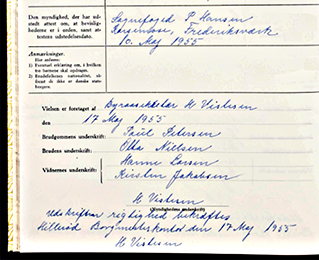 Den myndighed, der har ud-
stedt attest om, at bevilig-
hederne er i orden, samt at-
testens udstedelsesdato.
Sognefoged P. Hansen
Frederiksværk
10. Maj 1955
Anmærkninger.
Her anføres:
1) Eventuel erklæring om, i hvilken
tro børnene skal opdrages.
2) Brudefolkenes nationalitet, så-
fremt de ikke er danske stats-
borgere.
Vielsen er foretaget af Byraasekretær H Vistesen
den 17 Maj 1955
Brudgommens underskrift: Poul Petersen
Brudens underskrift: Ella Nielsen
Vidnernes underskrift: Hanne Larsen
Kirsten Jakobsen
H Vistesen
(Myndighedens underskrift)
Udskriftens rigtighed bekræftes
Hillerød Borgmesterkontor den 17 Maj 1955
H Vistesen